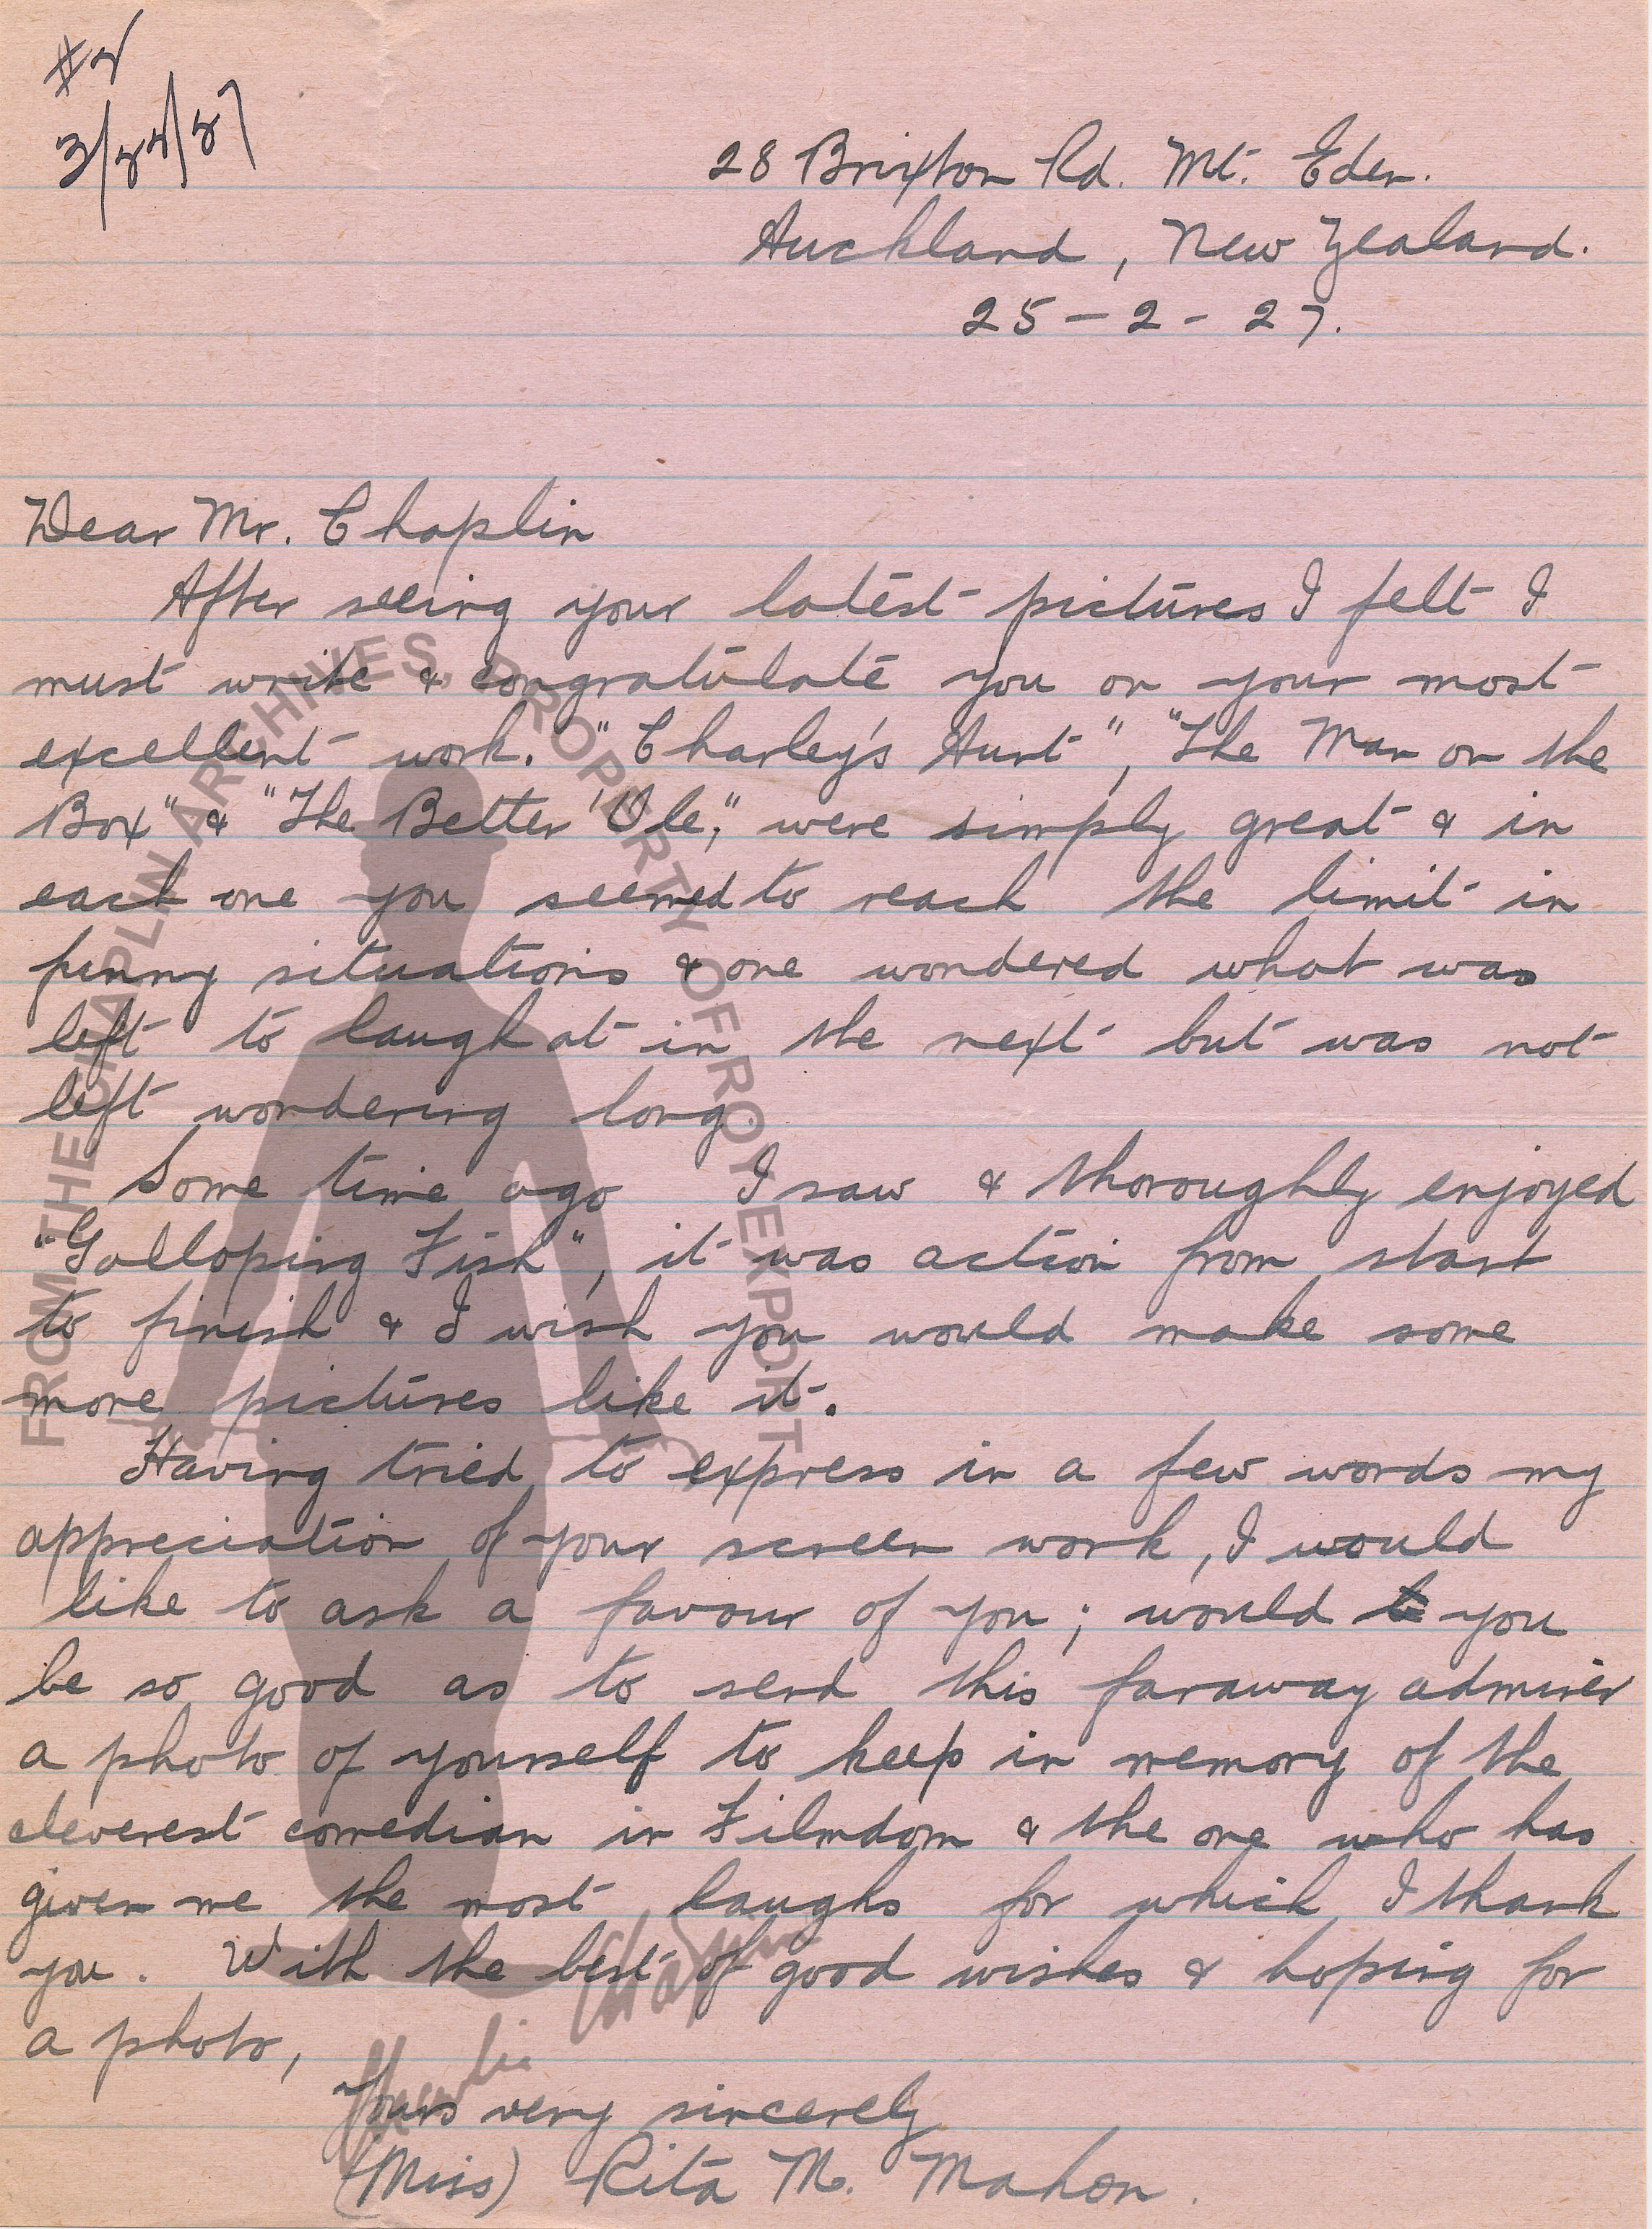 #4
3/24/27
28 Brixton Rd. Mt. Eden.
Auckland, New Zealand.
25-2-27.
Dear Mr. Chaplin
After seeing your latest pictures I felt I
must write & congratulate you on your most
excellent work. "Charley's Aunt", "The Man on the
Box" & "The Better 'Ole," were simply great & in
each one you seemed to reach the limit in
funny situations & one wondered what was
left to laugh at in the next but was not
left wondering long
Some time ago I saw & thoroughly enjoyed
"Galloping Fish", it was action from start
to finish & I wish you would make some
more pictures like it.
Having tried to express in a few words my
appreciation of your screen work, I would
like to ask a favour of you; would you
be so good as to send this faraway admirer
a photo of yourself to keep in memory of the
cleverest comedian in Filmdom & the one who has
given me the most laughs for which I thank
you. With the best of good wishes & hoping for
a photo,
Yours very sincerely
(Miss) Rita M. Mahon.
FROM THE CHAPLIN ARCHIVES, PROPERTY OF ROY EXPORT
Charlie Chaplin